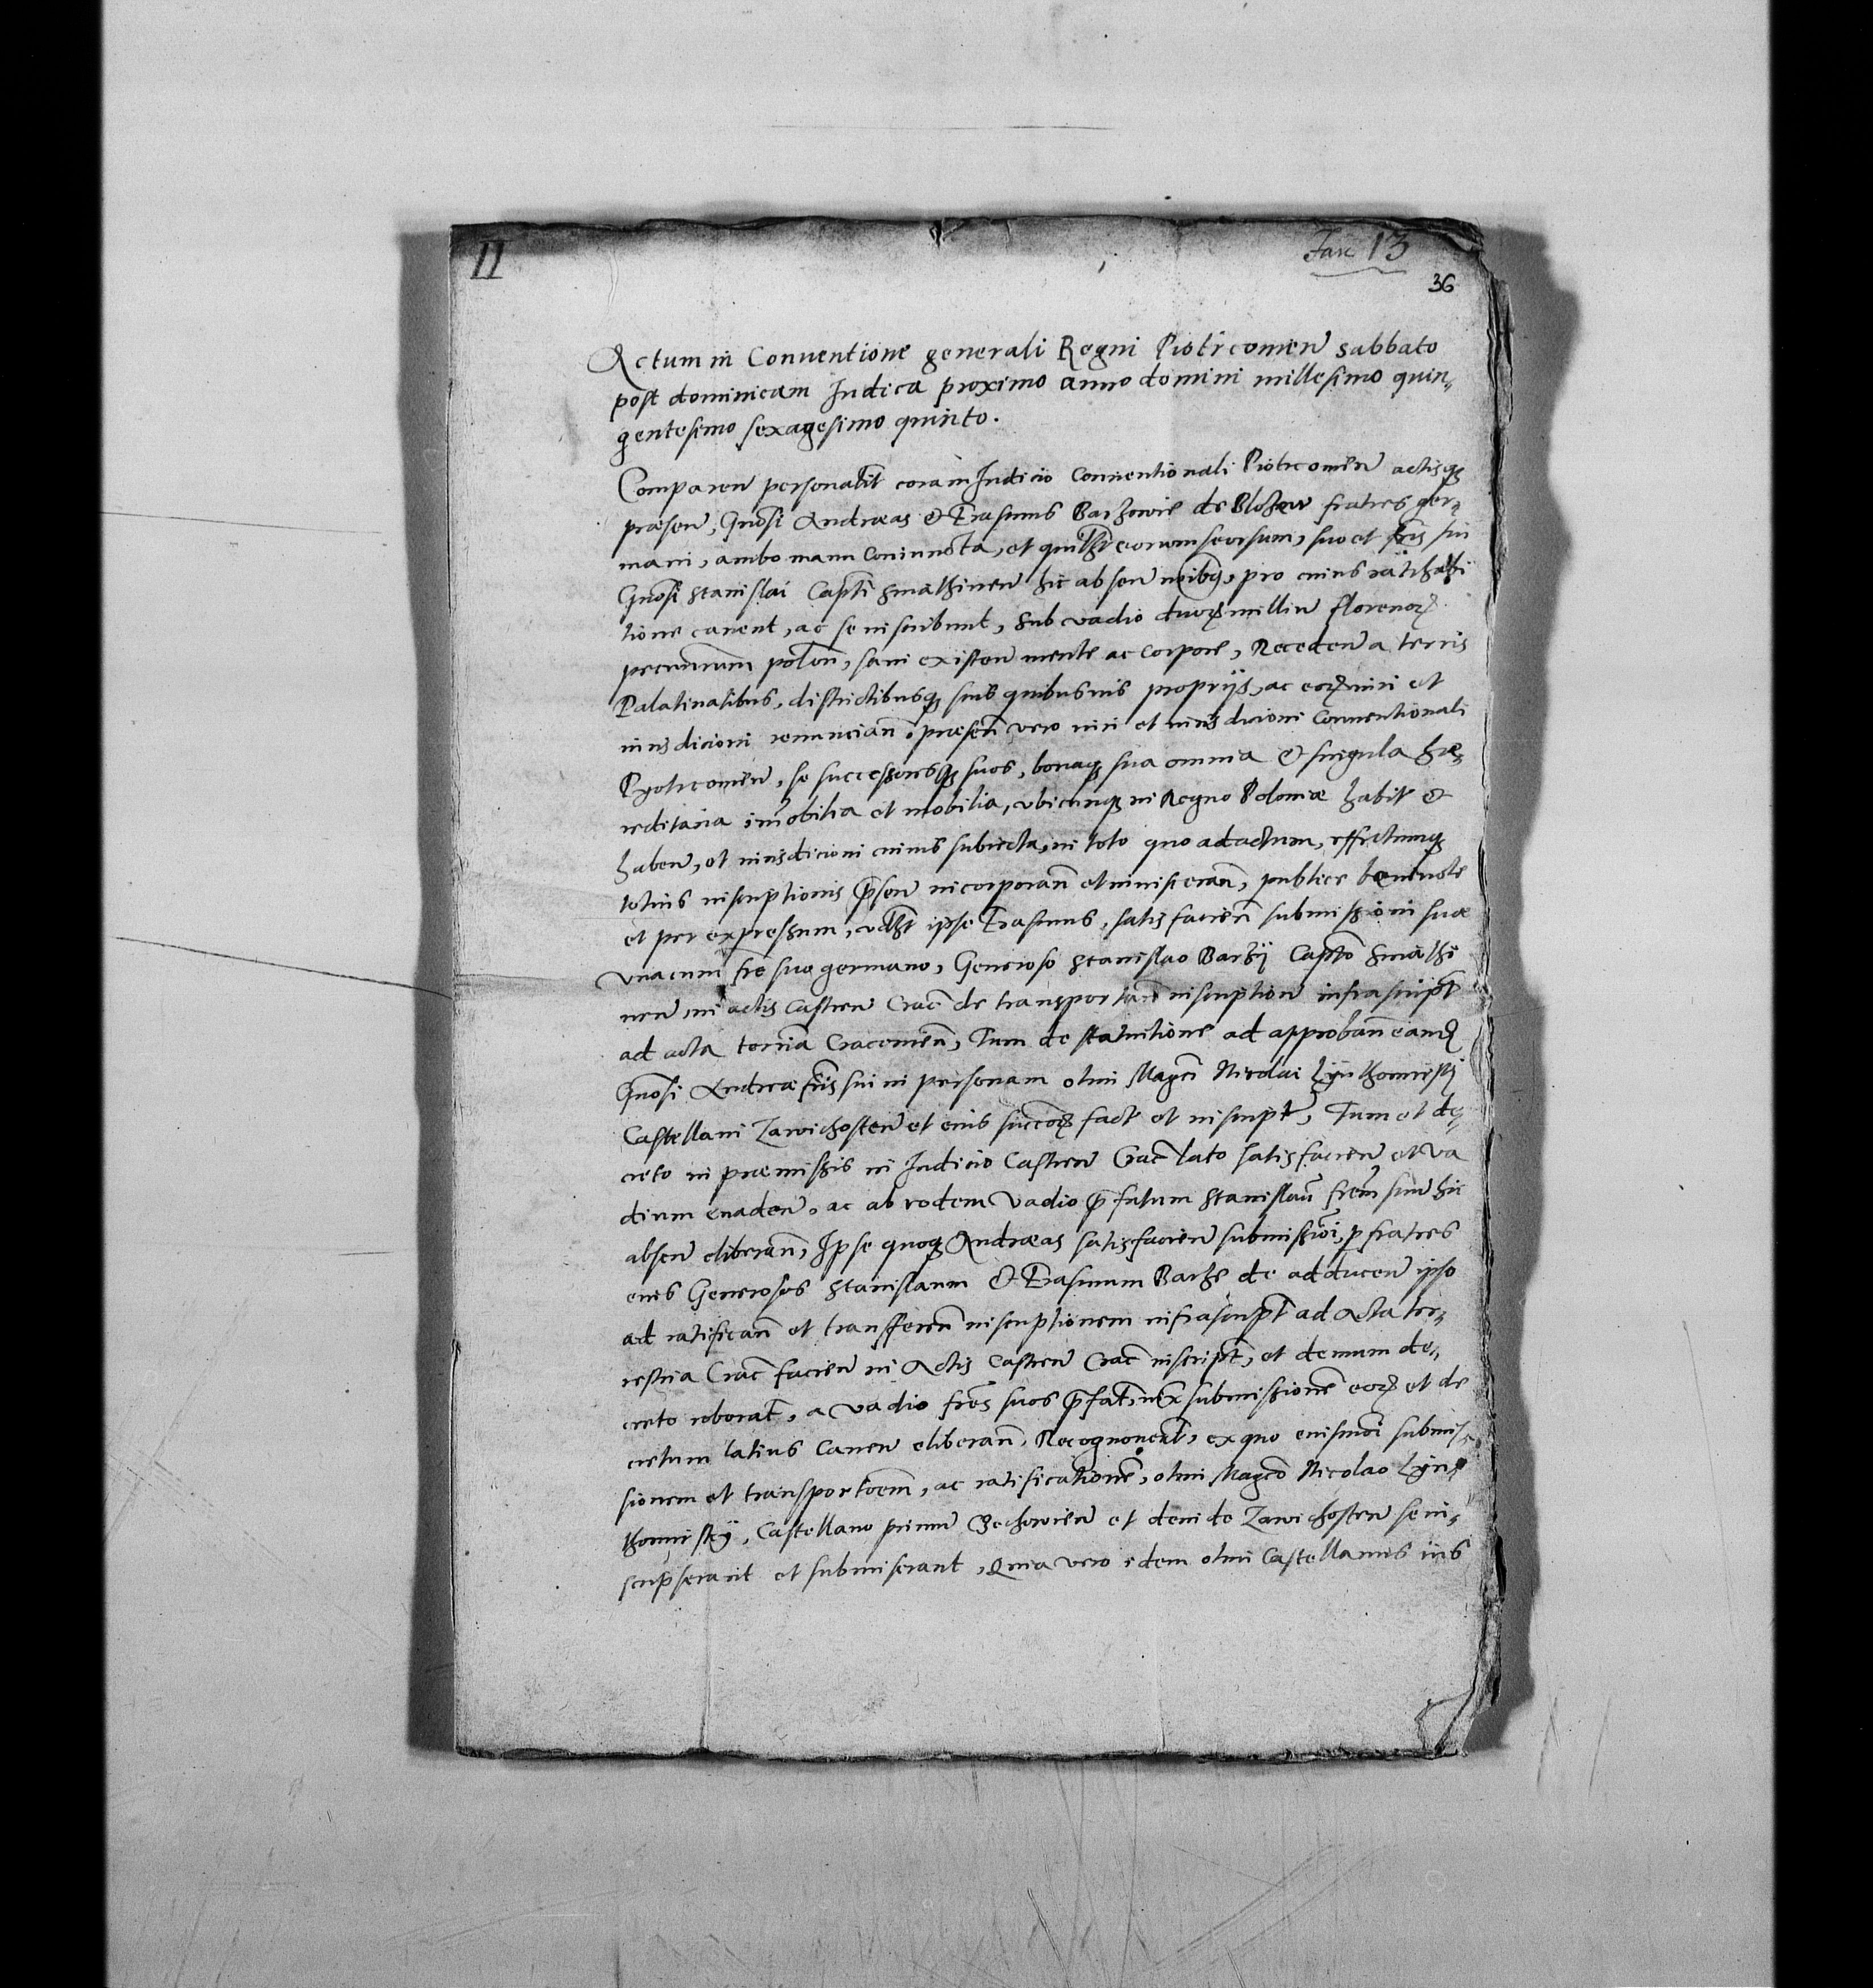 11
Fasc 13
36
Actum in Conventione generali Regni Piotrcovien sabbato
post dominicam Judica proximo anno domini millesimo quin„
gentesimo sexagesimo quinto.
Comparen personalit coram Judicio Conventionali Piotrcovien actisq
præsen, Gnosi Andreas & Erasmus Barzowie de Blozew fratres ger„
mani, ambo manu coniuncta, et quilibt eorum seorsum, suo et fris sui
Gnosi Stanislai Capti Sniathinen hic absen noibq, pro cuius ratihabi
tione cavent, ac se inscribunt, sub vadio duorz milliu florenorz
pecuniarum polon, sani existen mente ac corpore, Receden a terris
Palatinatibus, districtibusq suis quibusvis proprijs, ac eorz iuri et
iurisdicioni renuncian, præsen vero iuri et iurisdicioni Conventionali
Pyotrcovien, se successoresq suos, bonaq sua omnia & singula hæ„
reditaria imobilia et mobilia, ubicunq in Regno Poloniæ habit &
haben, et iurisdicioni cuius subiecta, in toto quo ad actum, effectumq
totius inscriptionis psen incorporan et invisceran, publice benevole
et per expressum, vdlt ipse Erasmus, satisfacien submissioni suæ
una cum fre suo germano, Generoso Stanislao Barzij Capto Sniathi
nen, in actis Castren Crac de transportan inscription infrascript
ad acta terria Cracovien, Tum de statuitione ad approban eandz
Gnosi Andreæ fris sui in personam olim Magci Nicolai Lyuthomirsky
Castellani Zawichosten et eius succorz fact et inscript, Tum et de„
creto in præmissis in Judicio Castren Crac lato satisfacien et va
dium evaden, ac ab eodem vadio pfatum Stanislau frem suu hic
absen eliberan, Ipse quoq Andreas satisfacien submissioi, p fratres
eius Generosos Stanislaum & Erasmum Barze de adducen ipso
ad ratifican et transferen inscriptionem infrascript ad acta ter„
restria Crac facien in Actis Castren Crac inscript, et demum de„
creto roborat, a vadio fres suos pfat, iux submissione eorz et de
cretum latius Caven eliberan, Recognoverut, ex quo eiusmoi submis„
sionem et transportoem, ac ratificatione, olim Magco Nicolao Lyu„
thomirsky, Castellano primu Czechowien et deinde Zawichosten se in„
scripserant et submiserant, Quia vero idem olim Castellanus ius